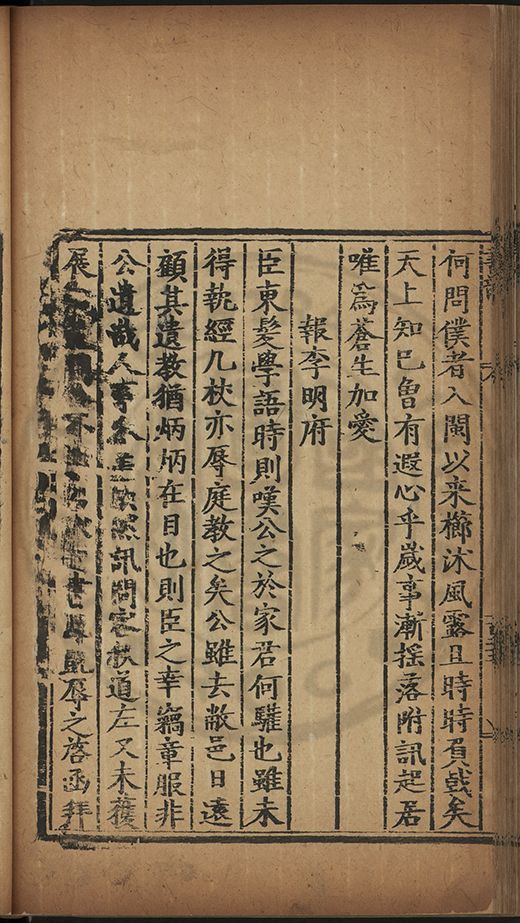 何問僕者入閩以来櫛沐風露且時時負戟矣
天上知巳曽有遐心乎歲事漸揺落附訊起居
唯爲蒼生加愛
報李明府
臣東髮學語時則嘆公之於家君何驩也雖未
得執經几杖亦辱庭教之矣公雖去敝邑日遠
顧其遺教猶炳炳在目也則臣之幸竊章服非
公遺哉人事參差歟然訊問寂然道左又未獲
展
辱之啓函拜